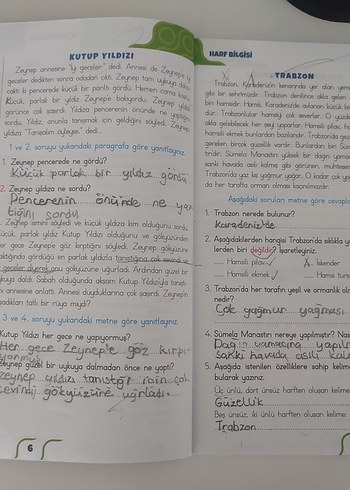 KUTUP YILDIZI
Zeynep annesine "İyi geceler." dedi. Annesi de Zeynep'e iyi
geceler dedikten sonra odadan çıktı. Zeynep tam uykuya
caktı ki pencerede küçük bir parıltı gördü. Hemen cama
Küçük, parlak bir yıldız Zeynep'e bakıyordu. Zeynep yıldızı
görünce çok şaşırdı. Yıldıza penceresinin önünde ne yaptığını
sordu. Yıldız onunla tanışmak için geldiğini söyledi. Zeynep
yıldıza "Tanışalım öyleyse." dedi...
1 ve 2. soruyu yukarıdaki paragrafa göre yanıtlayınız.
1. Zeynep pencerede ne gördü?
Küçük parlak bir yıldız gördü
2. Zeynep yıldıza ne sordu?
Pencerenin önünde ne yap
tığını sordu
Zeynep ismini söyledi ve küçük yıldıza kim olduğunu sordu.
Küçük, parlak yıldız Kutup Yıldızı olduğunu ve gökyüzünden
her gece Zeynep'e göz kırptığını söyledi. Zeynep gökyüzüne
baktığında gördüğü en parlak yıldızla tanıştığına çok sevindi
geceler diyerek onu gökyüzüne uğurladı. Ardından güzel bir
uykuya daldı. Sabah olduğunda akşam Kutup Yıldızıyla tanıştı
annesine anlattı. Annesi duyduklarına çok şaşırdı. Zeynep'in
yaşadıkları tatlı bir rüya mıydı?
3 ve 4. soruyu yukarıdaki metne göre yanıtlayınız.
Kutup Yıldızı her gece ne yapıyormuş?
Her gece Zeynep'e göz kırpı
yormuş
Zeynep güzel bir uykuya dalmadan önce ne yaptı?
zeynep yıldızı tanıştığı için çok
sevindi gökyüzüne uğurladı.
6
HARF BİLGİSİ
TRABZON
Trabzon, Karadeniz'in kenarında yer alan yemyeşil
gibi bir şehrimizdir. Trabzon denilince akla gelen
biri hamsidir. Hamsi, Karadeniz'de avlanan küçük bir
dır. Trabzonlular hamsiyi çok severler. O yüzden
akla gelebilecek her şeyi yaparlar. Hamsili pilav,
hamsili ekmek bunlardan bazılarıdır. Trabzon'da
gereken birçok güzellik vardır. Bunlardan biri Sümela
tırıdır. Sümela Manastırı uzaktan bir dağın yamacına
sanki havada asılı kalmış gibi görünen, muhteşem
Trabzon'da yaz kış yağmur yağar. O kadar çok
da her tarafın orman olması kaçınılmazdır.
Aşağıdaki soruları metne göre cevaplayınız.
1. Trabzon nerede bulunur?
Karadeniz'de
2. Aşağıdakilerden hangisi Trabzon'da sıklıkla
lerden biri değildir? İşaretleyiniz.
Hamsili pilav İskender
Hamsili ekmek Hamsi
3. Trabzon'da her tarafın yeşil ve ormanlık
nedir?
Çok yağmur yağması
4. Sümela Manastırı nereye yapılmıştır? Nasıl
Dağın yamacına yapıl
sanki havada asılı kal
5. Aşağıda istenilen özelliklere sahip kelimeleri
bularak yazınız.
Üç ünlü, dört ünsüz harften oluşan kelime:
Güzellik
Beş ünsüz, iki ünlü harften oluşan kelime:
Trabzon